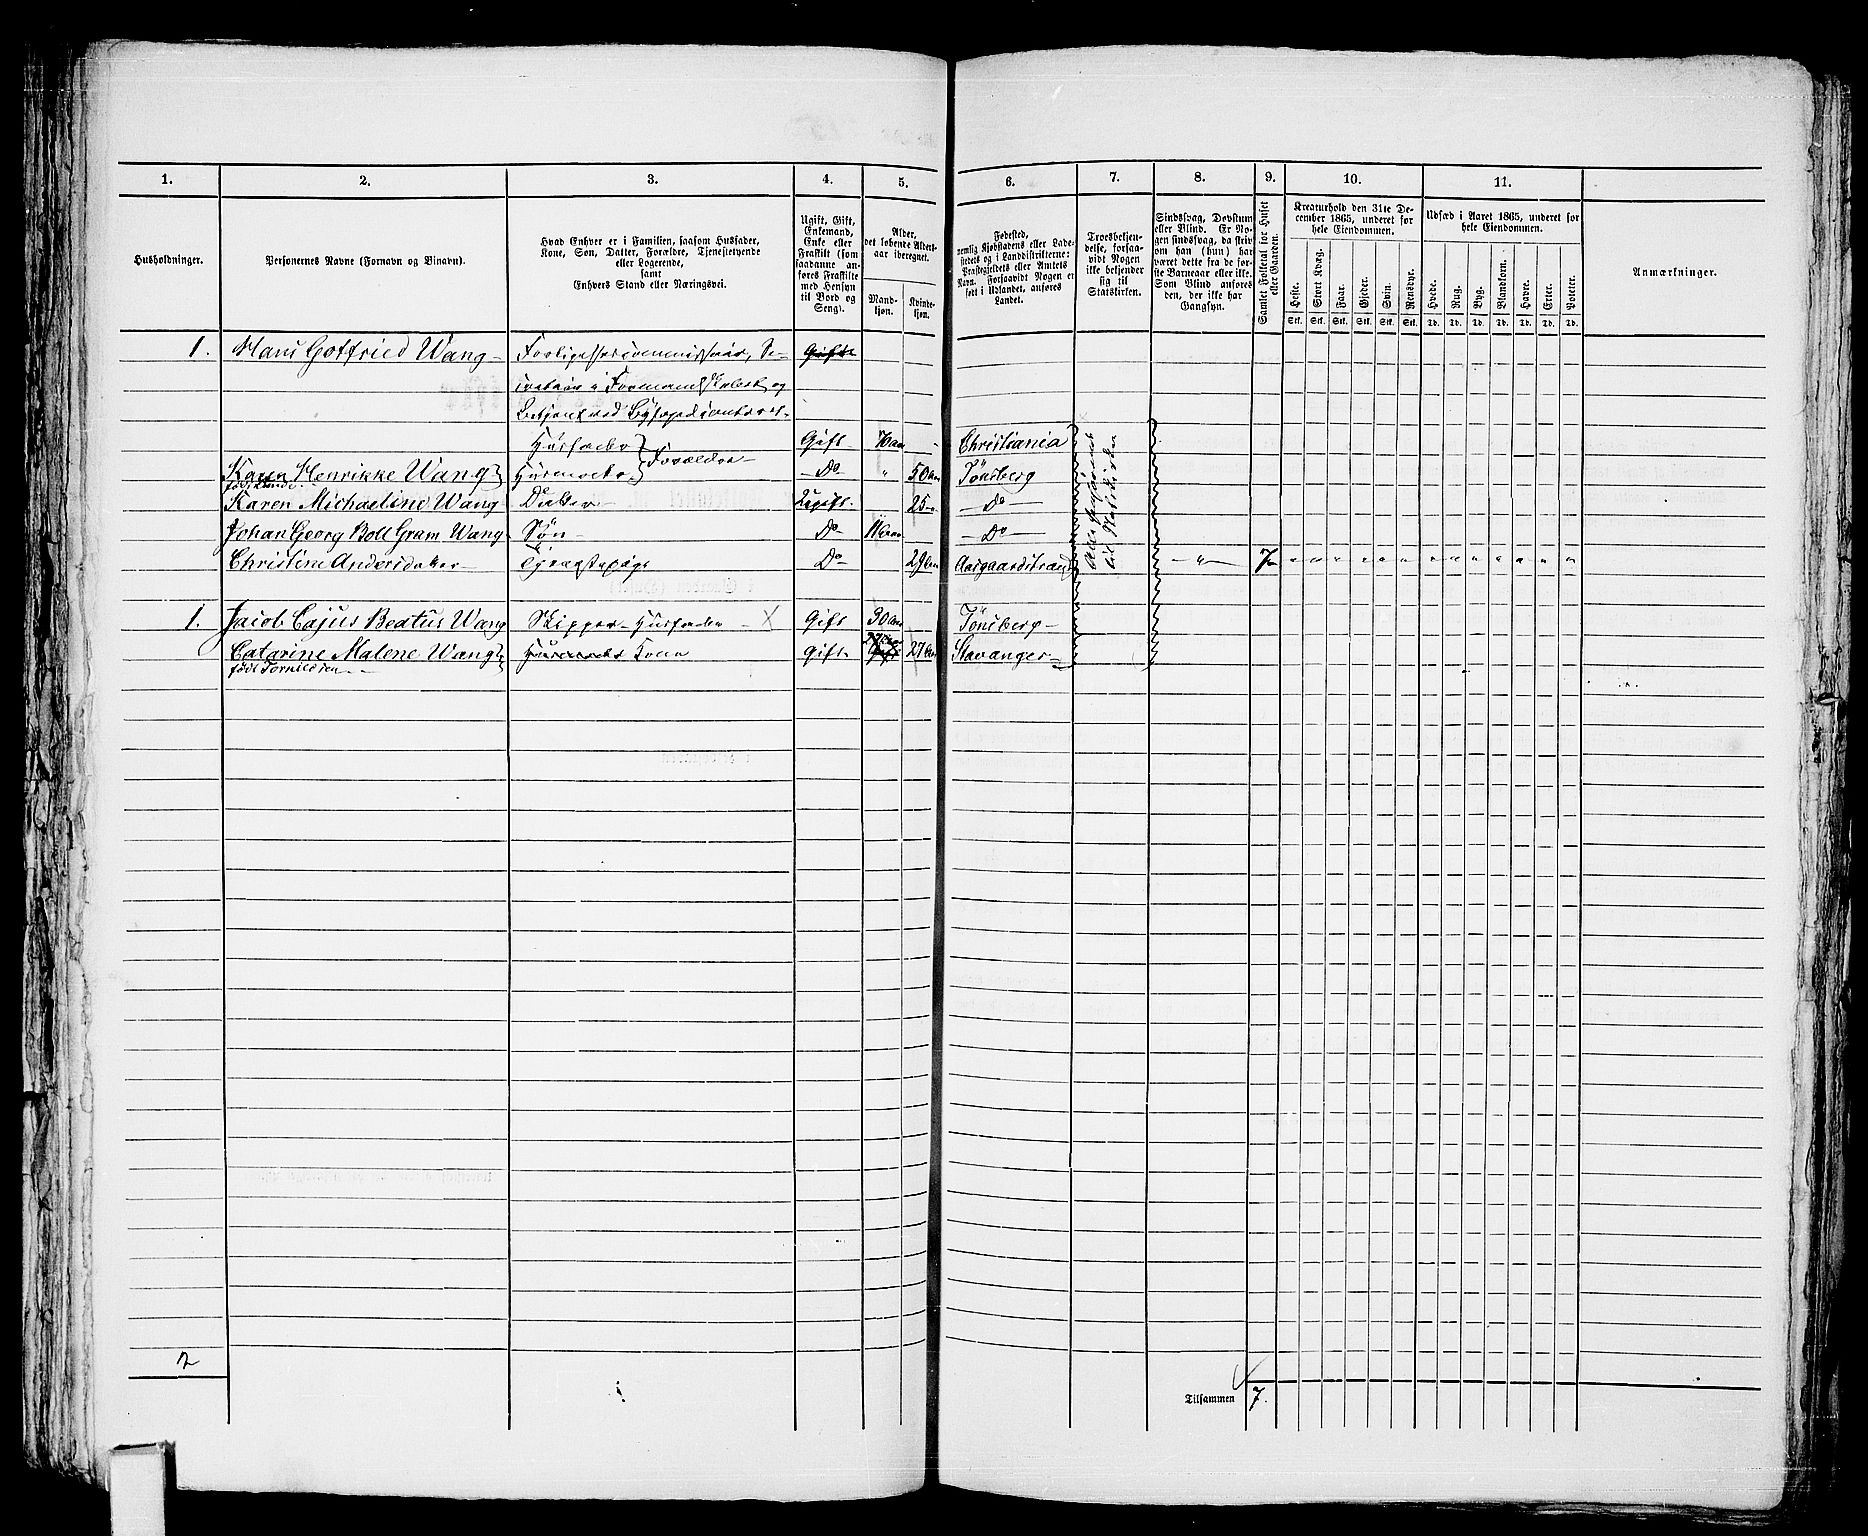 1. 2. 3. 4. 5. 6. 7. 8. 9. 10. 11.
Husholdninger.
Personernes Navne (Fornavn og Binavn).
Hvad Enhver er i Familien, saasom Husfader,
Kone, Søn, Datter, Forældre, Tjenestetyende
eller Logerende,
samt
Enhvers Stand eller Næringsvei.
Ugift, Gift,
Enkemand,
Enke eller
Fraskilt (som
saadanne an-
føres Fraskilte
med Hensyn
til Bord og
Seng).
Alder,
det løbende Alders-
aar iberegnet.
Mand-
kjøn.
Kvinde-
kjøn.
Fødested,
nemlig Kjøbstadens eller Lade-
stedets og i Landdistrikterne:
Præstegjeldets eller Amtets
Navn. Forsaavidt Nogen er
født i Udlandet, anføres
Landet.
Troesbekjen-
delse, forsaa-
vidt Nogen
ikke bekjender
sig til
Statskirken.
Sindssvag, Døvstum
eller Blind. Er No-
gen sindssvag, da skriv
om han (hun) har
været dette fra de før-
ste Barneaar eller ikke.
Som Blind anføres
den, der ikke har
Gangsyn.
Samlet Folketal for Huset
eller Gaarden.
Kreaturhold den 31te De-
cember 1865, underet for
hele Eiendommen.
Heste. Stort Kvæg. Faar. Gjeder. Svin. Rensdyr.
Stk. Stk. Stk. Stk. Stk. Stk.
Udsæd i Aaret 1865, underet for
hele Eiendommen.
Hvede. Rug. Byg. Blandkorn. Havre. Erter. Poteter.
Td. Td. Td. Td. Td. Td. Td.
Anmærkninger.
1. Hans Gotfried Wang - Forligelsescommissair, Se- Gift
cretair i Formandskabet og
Betjent ved
Husfader Gift 70 aar Christiania
Karen Henrikke Wang Husmoder Forældre Do " 50 aar Tønsberg
født
Karen Michaeline Wang Datter Ugift 25 Do
Johan Georg Boll Gram Wang Søn Do Do
Christine Andersdatter Tjenestepige Do 29 aar Aasgaardstrand " 7
til Statskirken
1. Jacob Cajus Beatus Wang Skipper Husfader X Gift 30 aar Tønsberg
Catarine Malene Wang Husmoder Kone Gift 27 aar Stavanger
født
2
Tilsammen 7.